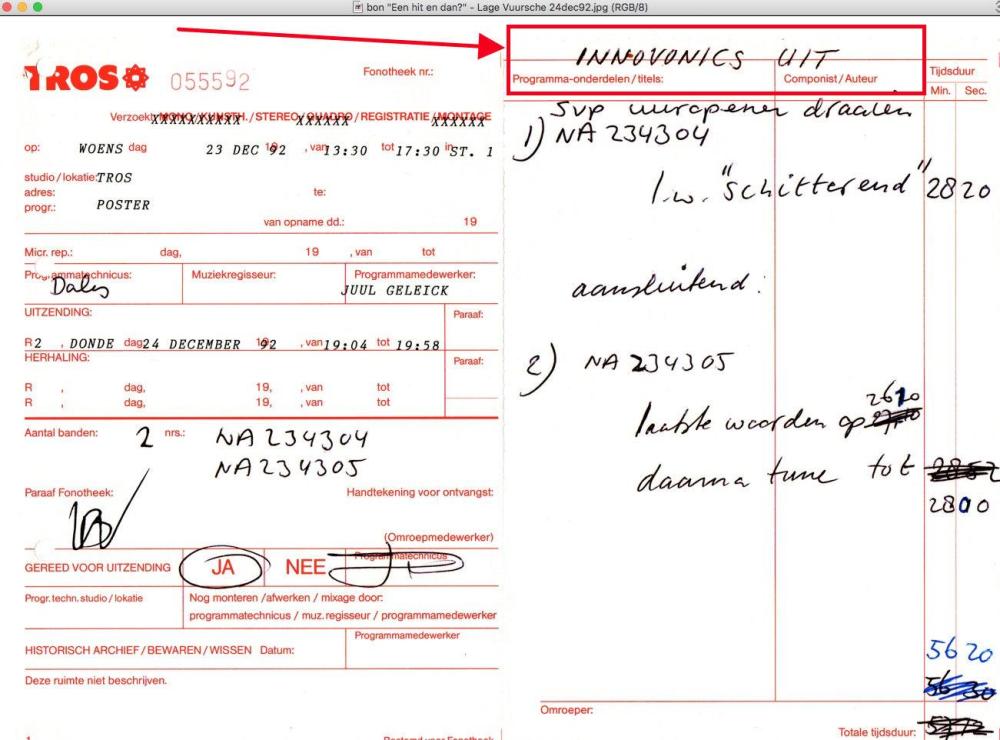 bon "Een hit en dan?" - Lage Vuursche 24dec92.jpg (RGB/8)
TROS 055592
Fonotheek nr.:
Verzoek: MONO/KUNSTH./STEREO/QUADRO/REGISTRATIE/MONTAGE
op: WOENS dag 23 DEC 1992, van 13:30 tot 17:30 in ST. 1
studio/lokatie: TROS
adres: te:
progr.: POSTER
van opname dd.: 19
Micr. rep.: dag, 19 , van tot
Programmatechnicus: Muziekregisseur: Programmamedewerker:
JUUL GELEICK
UITZENDING: Paraaf:
R2 , DONDE dag 24 DECEMBER 1992 , van 19:04 tot 19:58
HERHALING: Paraaf:
R , dag, 19, , van tot
R , dag, 19, , van tot
Aantal banden: 2 nrs.: NA 234304
NA 234305
Paraaf Fonotheek: Handtekening voor ontvangst:
(Omroepmedewerker)
GEREED VOOR UITZENDING JA NEE Programmatechnicus
Progr.techn.studio/lokatie Nog monteren/afwerken/mixage door:
programmatechnicus/muz.regisseur/programmamedewerker
HISTORISCH ARCHIEF/BEWAREN/WISSEN Datum: Programmamedewerker
Deze ruimte niet beschrijven.
INNOVONICS UIT
Programma-onderdelen/titels: Componist/Auteur Tijdsduur
Min. Sec.
svp uuropener draaien
1) NA 234304
l.w. "schitterend" 28 20
aansluitend:
2) NA 234305
26 10
laatste woorden op
daarna tune tot 28 52
28 00
56 20
Omroeper:
Totale tijdsduur: